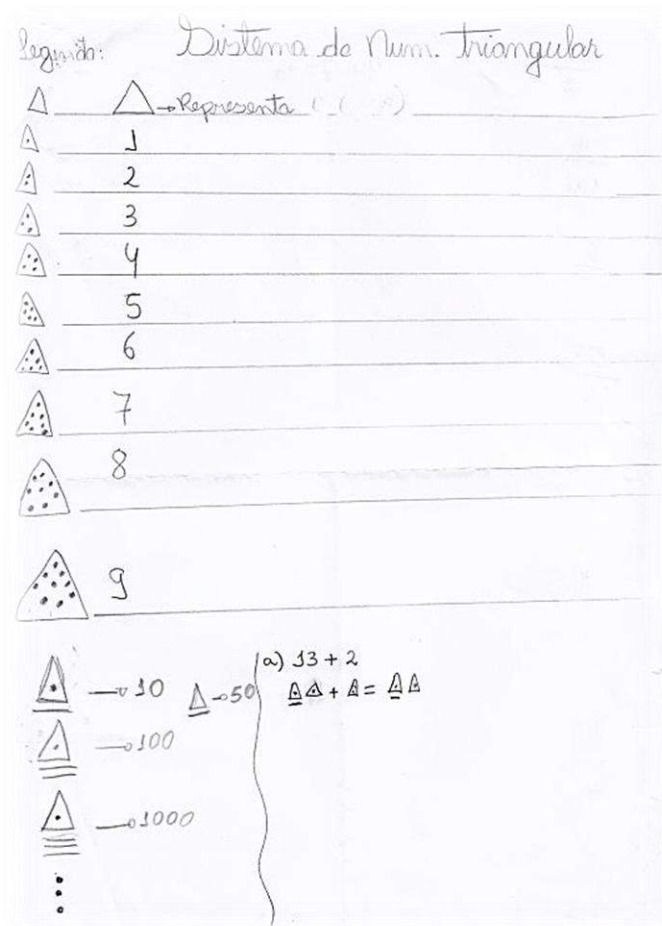 Sistema de Num. Triangular
→ Representa
1
2
3
4
5
6
7
8
9
→ 10
→ 50
→ 100
→ 1000
a) 13 + 2
+ =